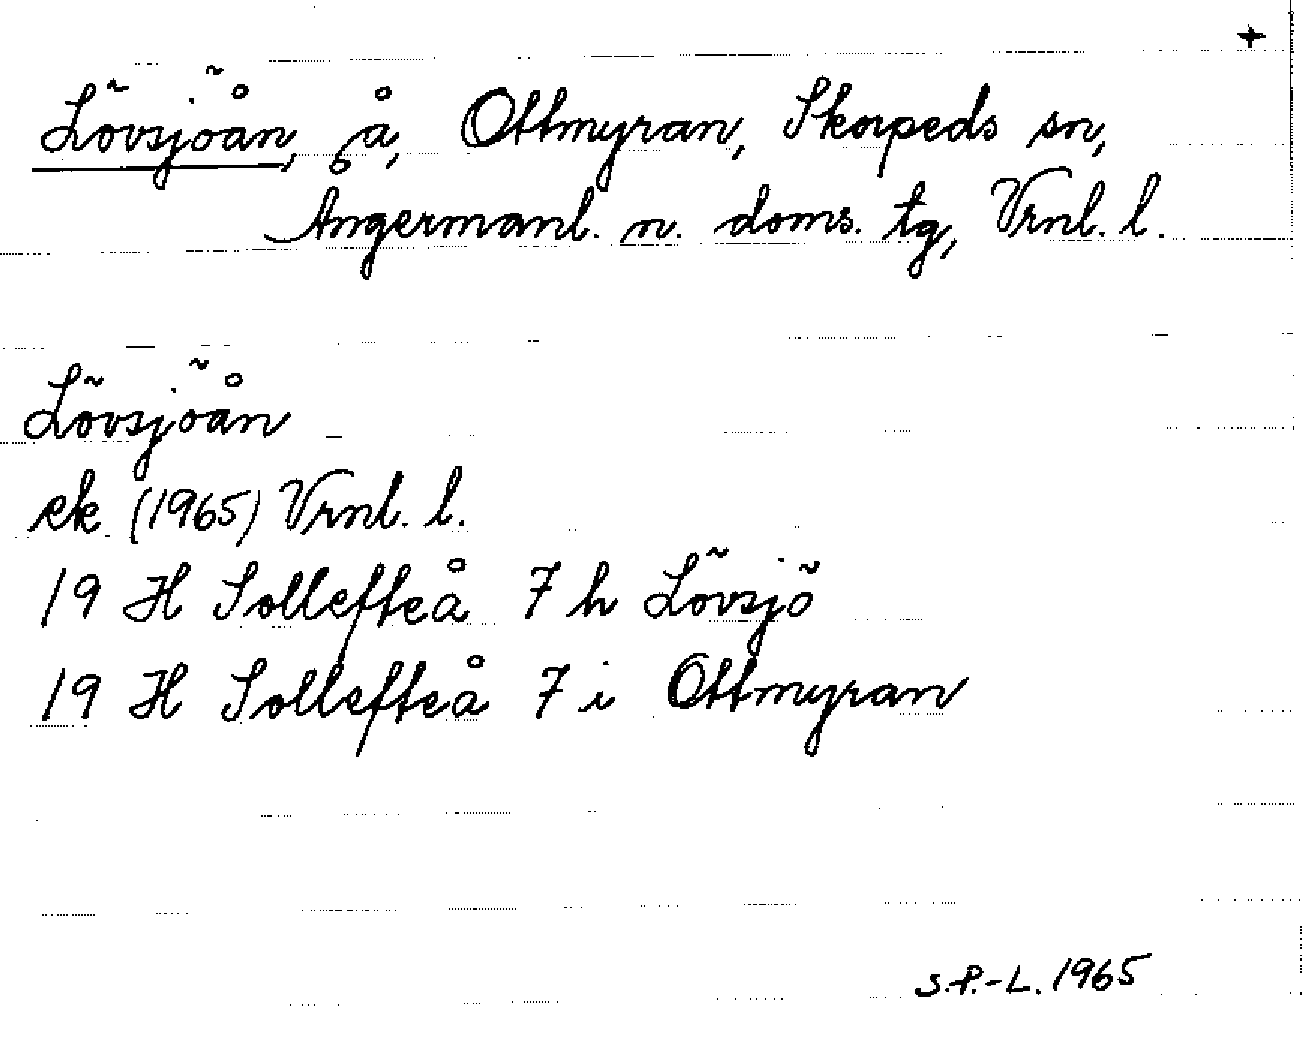 +
Lövsjöån, å, Ottmyran, Skorpeds sn,
Ångermanl. n. doms. tg, Vrnl. l.
Lövsjöån
ek (1965) Vrnl. l.
19 H Sollefteå 7 h Lövsjö
19 H Sollefteå 7 i Ottmyran
S.P.-L. 1965